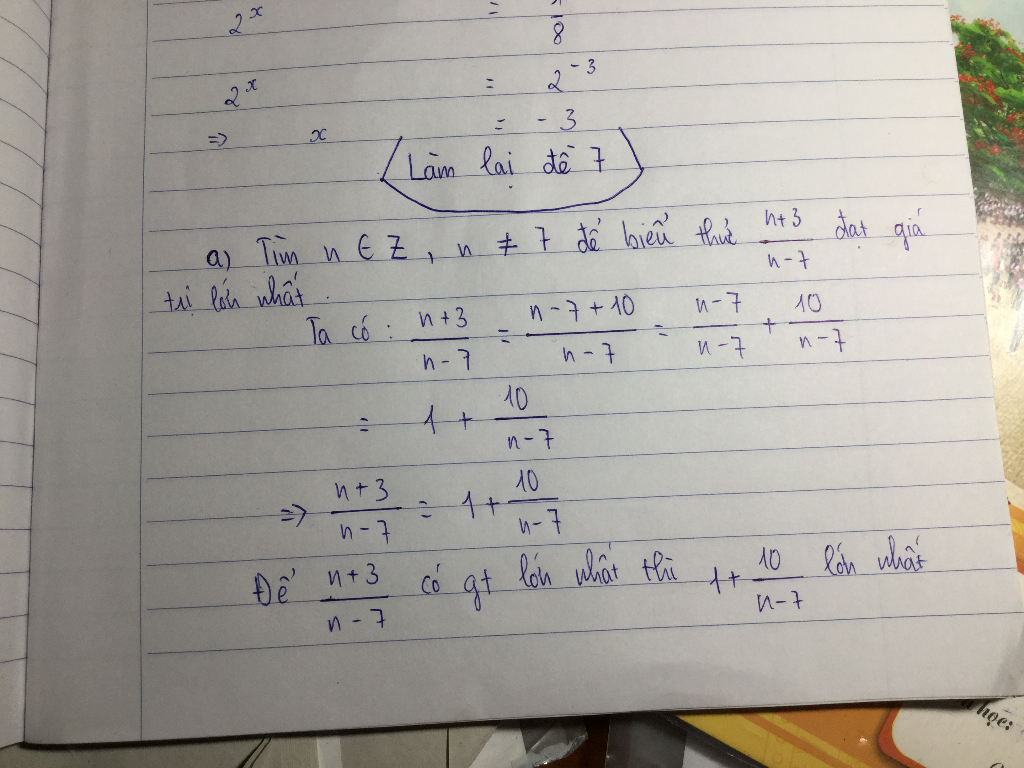 2^x = 1/8
2^x = 2^-3
=> x = - 3
Làm lại đề 7
a) Tìm n ∈ Z, n ≠ 7 để biểu thức (n+3)/(n-7) đạt giá
trị lớn nhất.
Ta có : (n+3)/(n-7) = (n-7+10)/(n-7) = (n-7)/(n-7) + 10/(n-7)
= 1 + 10/(n-7)
=> (n+3)/(n-7) = 1 + 10/(n-7)
Để (n+3)/(n-7) có gt lớn nhất thì 1 + 10/(n-7) lớn nhất
học: